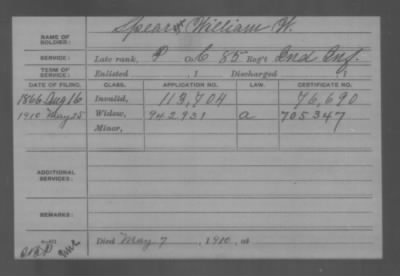 NAME OF SOLDIER: Spears, William W.
SERVICE: Late rank, P Co. C 85 Reg't Ind Inf.
TERM OF SERVICE: Enlisted , 1 Discharged , 1
DATE OF FILING. CLASS. APPLICATION NO. LAW. CERTIFICATE NO.
1866 Aug 16 Invalid, 113,704 76,690
1910 May 25 Widow, 942,931 a 705347
Minor,
ADDITIONAL SERVICES:
REMARKS:
Died May 7, 1910, at